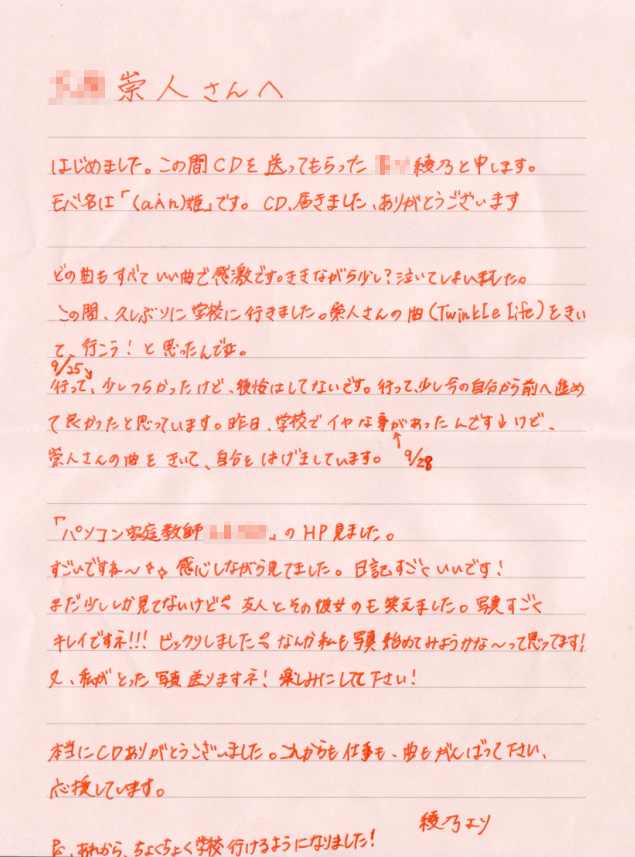 崇人さんへ
はじめました。この間CDを送ってもらった 綾乃と申します。
モバ名は「(aiん)姫」です。 CD、届きました、ありがとうございます
どの曲もすべていい曲で感激です。ききながら少し?泣いてしまいました。
この間、久しぶりに学校に行きました。崇人さんの曲(Twinkle life)をきい
て、行こう!と思ったんです。
9/25
行って、少しつらかったけど、後悔はしてないです。行って、少し今の自分から前へ進め
て良かったと思っています。昨日、学校でイヤな事があったんです↓けど、
崇人さんの曲をきいて、自分をはげましています。 ↑9/28
「パソコン家庭教師 」のHP見ました。
すごいですね〜 感心しながら見てました。日記すごくいいです!
まだ少ししか見てないけど 友人とその彼女のも笑えました。写真すごく
キレイですネ!!! ビックリしました なんか私も写真始めてみようかな〜って思ってます!
又、私がとった写真送りますネ! 楽しみにして下さい!
本当にCDありがとうございました。これからも仕事も、曲もがんばって下さい、
応援しています。
綾乃より
P.S、あれから、ちょくちょく学校行けるようになりました!